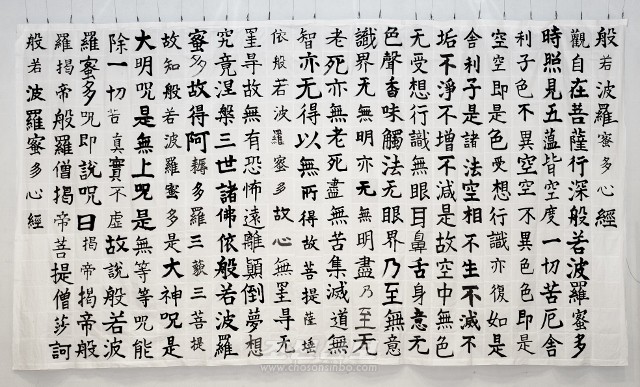 般若波羅蜜多心經
觀自在菩薩行深般若波羅蜜多
時照見五蘊皆空度一切苦厄舍
利子色不異空空不異色色即是
空空即是色受想行識亦復如是
舍利子是諸法空相不生不滅不
垢不淨不增不減是故空中無色
无受想行識無眼耳鼻舌身意无
色聲香味觸法无眼界乃至無意
識界无無明亦无無明盡乃至无
老死亦無老死盡無苦集滅道無
智亦无得以無所得故菩提薩埵
依般若波羅蜜多故心無罣㝵无
罣㝵故無有恐怖遠離顚倒夢想
究竟涅槃三世諸佛依般若波羅
蜜多故得阿耨多羅三藐三菩提
故知般若波羅蜜多是大神呪是
大明呪是無上呪是無等等呪能
除一切苦眞實不虛故說般若波
羅蜜多呪即說呪曰揭帝揭帝般
羅揭帝般羅僧揭帝菩提僧莎訶
般若波羅蜜多心經
www.chosonsinbo.com